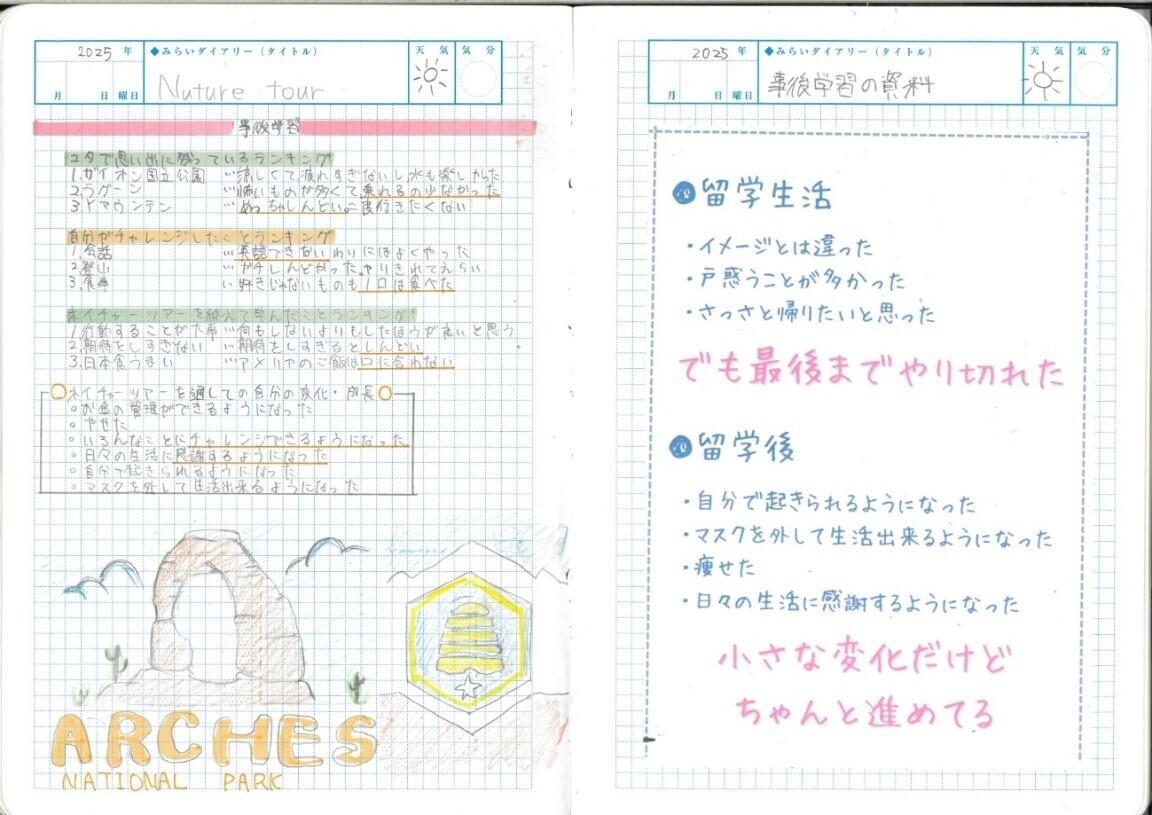 2025 年
◆みらいダイアリー(タイトル)
天 気
気 分
月 日 曜日
Nuture tour
事後学習
ユタで思い出に残っているランキング
1.ザイオン国立公園 …涼しくて疲れすぎないし水も楽しかった
2.ラグーン …怖いものが多くて乗れるの少なかった
3.Yマウンテン …めっちゃしんどい。二度行きたくない
自分がチャレンジしたことランキング
1.会話 …英語できないわりにはよくやった
2.登山 …ガチしんどかった。やりきれてえらい
3.食事 …好きじゃないものも1口は食べた
ネイチャーツアーを終えて学んだことランキング
1.行動することが大事…何もしないよりもしたほうが良いと思う。
2.期待をしすぎない …期待をしすぎるとしんどい
3.日本食うまい …アメリカのご飯は口に合わない
ネイチャーツアーを通しての自分の変化・成長
○お金の管理ができるようになった
○やせた
○いろんなことにチャレンジできるようになった
○日々の生活に感謝するようになった
○自分で起きられるようになった
○マスクを外して生活出来るようになった
ARCHES
NATIONAL PARK
2025 年
◆みらいダイアリー(タイトル)
天 気
気 分
月 日 曜日
事後学習の資料
留学生活
・イメージとは違った
・戸惑うことが多かった
・さっさと帰りたいと思った
でも最後までやり切れた
留学後
・自分で起きられるようになった
・マスクを外して生活出来るようになった
・痩せた
・日々の生活に感謝するようになった
小さな変化だけど
ちゃんと進めてる